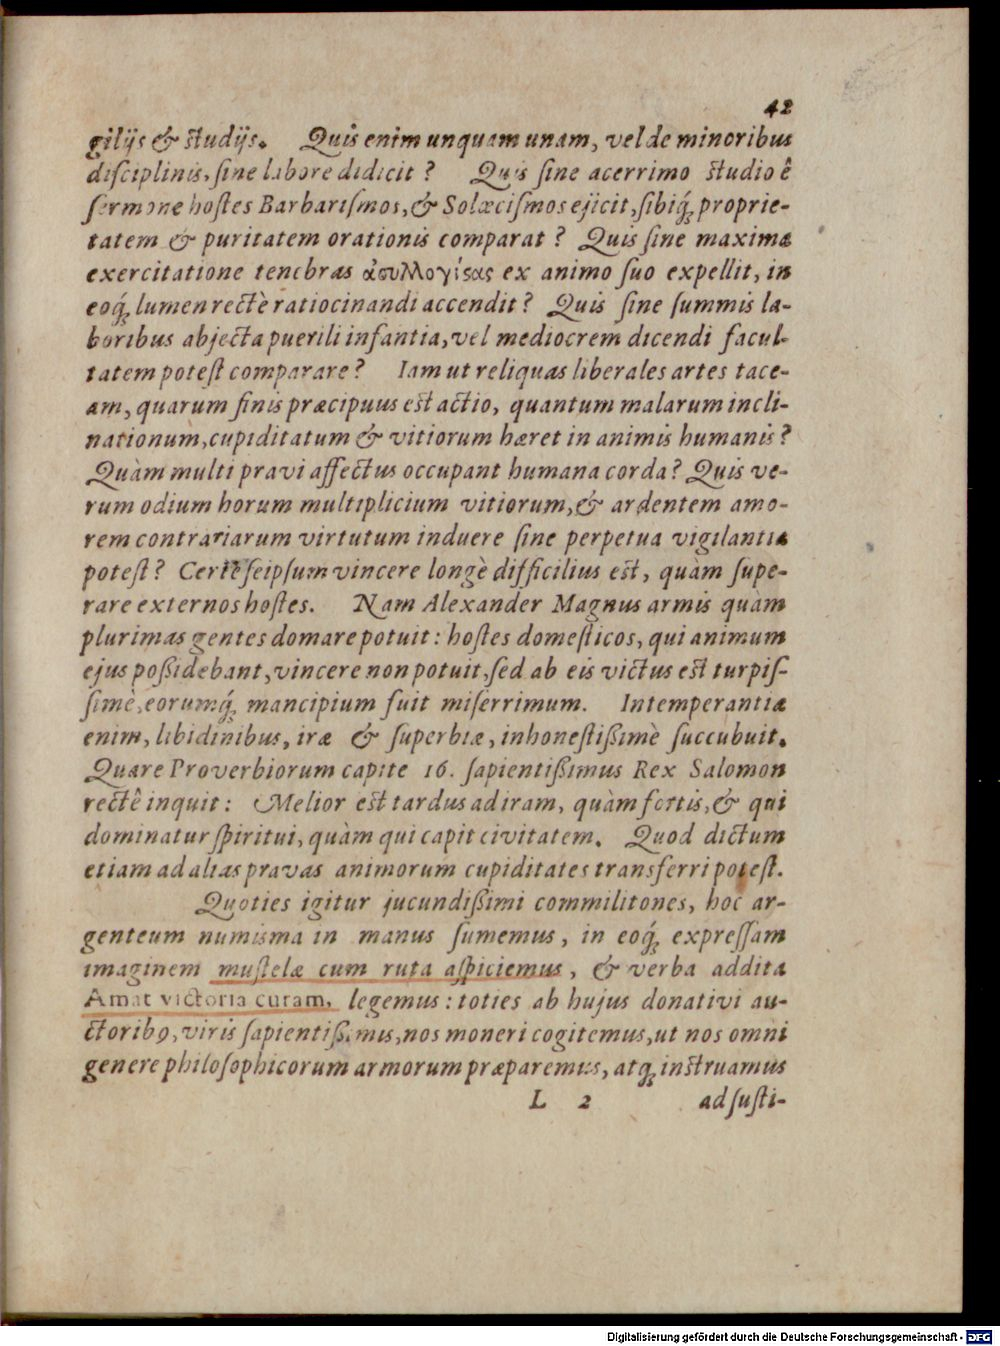 42
gilijs & studijs. Quis enim unquam unam, vel de minoribus
disciplinis, sine labore didicit? Quis sine acerrimo studio ê
sermone hostes Barbarismos, & Solœcismos ejicit, sibiq́; proprie-
tatem & puritatem orationis comparat? Quis sine maxima
exercitatione tenebras ἀσυλλογίσας ex animo suo expellit, in
eoq́; lumen rectè ratiocinandi accendit? Quis sine summis la-
boribus abjecta puerili infantia, vel mediocrem dicendi facul-
tatem potest comparare? Iam ut reliquas liberales artes tace-
am, quarum finis præcipuus est actio, quantum malarum incli-
nationum, cupiditatum & vitiorum hæret in animis humanis?
Quàm multi pravi affectus occupant humana corda? Quis ve-
rum odium horum multiplicium vitiorum, & ardentem amo-
rem contrariarum virtutum induere sine perpetua vigilantia
potest? Certè seipsum vincere longè difficilius est, quàm supe-
rare externos hostes. Nam Alexander Magnus armis quàm
plurimas gentes domare potuit: hostes domesticos, qui animum
ejus poßidebant, vincere non potuit, sed ab eis victus est turpis-
simè, eorumq́; mancipium fuit miserrimum. Intemperantiæ
enim, libidinibus, iræ & superbiæ, inhonestißimè succubuit.
Quare Proverbiorum capite 16. sapientißimus Rex Salomon
rectê inquit: Melior est tardus ad iram, quàm fortis, & qui
dominatur spiritui, quàm qui capit civitatem. Quod dictum
etiam ad alias pravas animorum cupiditates transferri potest.
Quoties igitur jucundißimi commilitones, hoc ar-
genteum numisma in manus sumemus, in eoq́; expressam
imaginem mustelæ cum ruta aspiciemus, & verba addita
Amat victoria curam, legemus: toties ab hujus donativi au-
ctorib9, viris sapientißimis, nos moneri cogitemus, ut nos omni
genere philosophicorum armorum præparemus, atq; instruamus
L 2 ad susti-
Digitalisierung gefördert durch die Deutsche Forschungsgemeinschaft - DFG